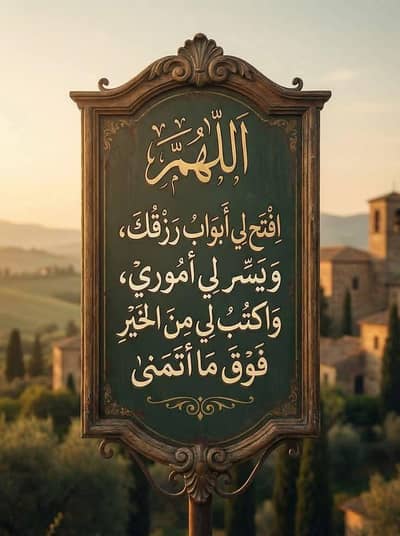 اَللّٰهُمَّ
اِفْتَح لي أَبوَابُ رَزْقُكَ،
وَيَسِّر لي أمُوري،
وَاكتُبُ لي مِنَ الخَيْرِ
فَوْقَ مَا أتَمَنىٰ